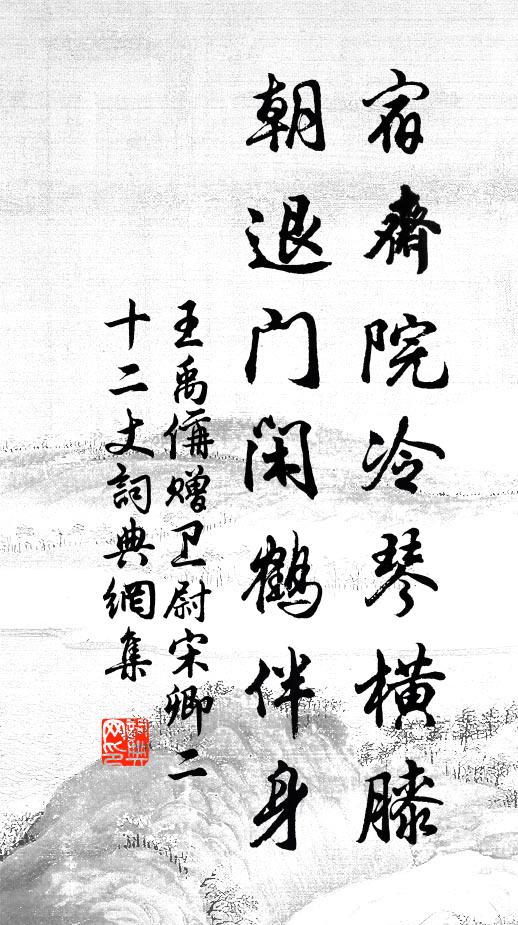 宿齋院冷琴橫膝
朝退门闲鶴伴身
王禹偁赠卫尉宋卿二
十二丈詞典網集